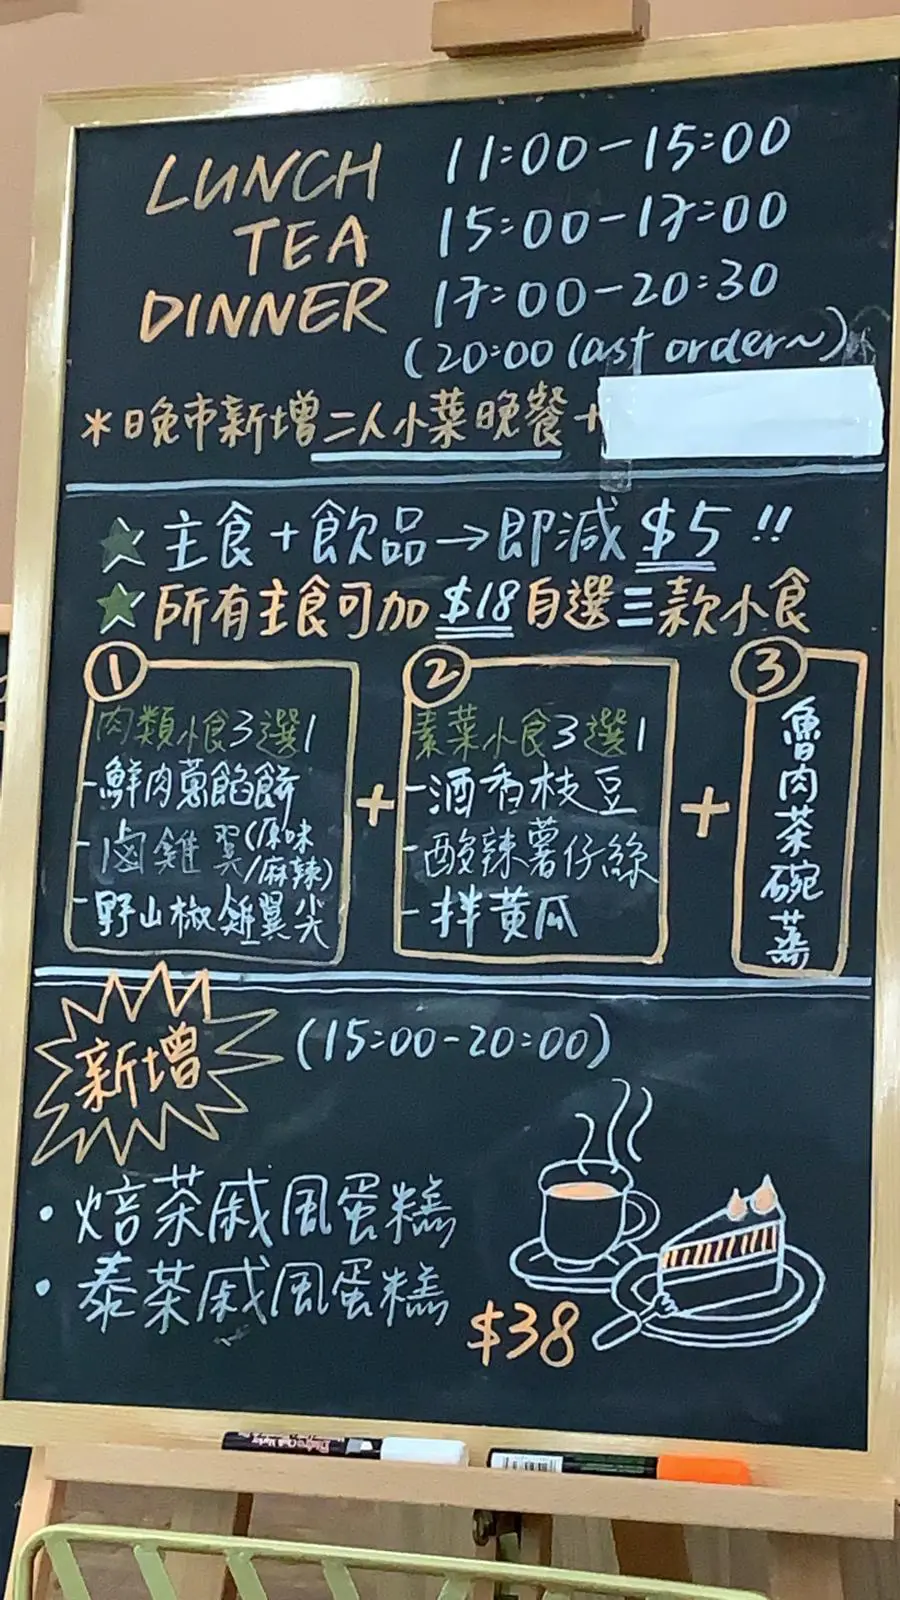 LUNCH 11:00-15:00
TEA 15:00-17:00
DINNER 17:00-20:30
(20:00 last order~)
*晚市新增二人小菜晚餐+
★主食+飲品→即減$5!!
★所有主食可加$18自選三款小食
①
肉類小食3選1
-鮮肉蔥餡餅
-鹵雞翼(原味/麻辣)
-野山椒雞翼尖
+
②
素菜小食3選1
-酒香枝豆
-酸辣薯仔絲
-拌黃瓜
+
③
魯肉茶碗蒸
新增 (15:00-20:00)
•焙茶戚風蛋糕
•泰茶戚風蛋糕
$38